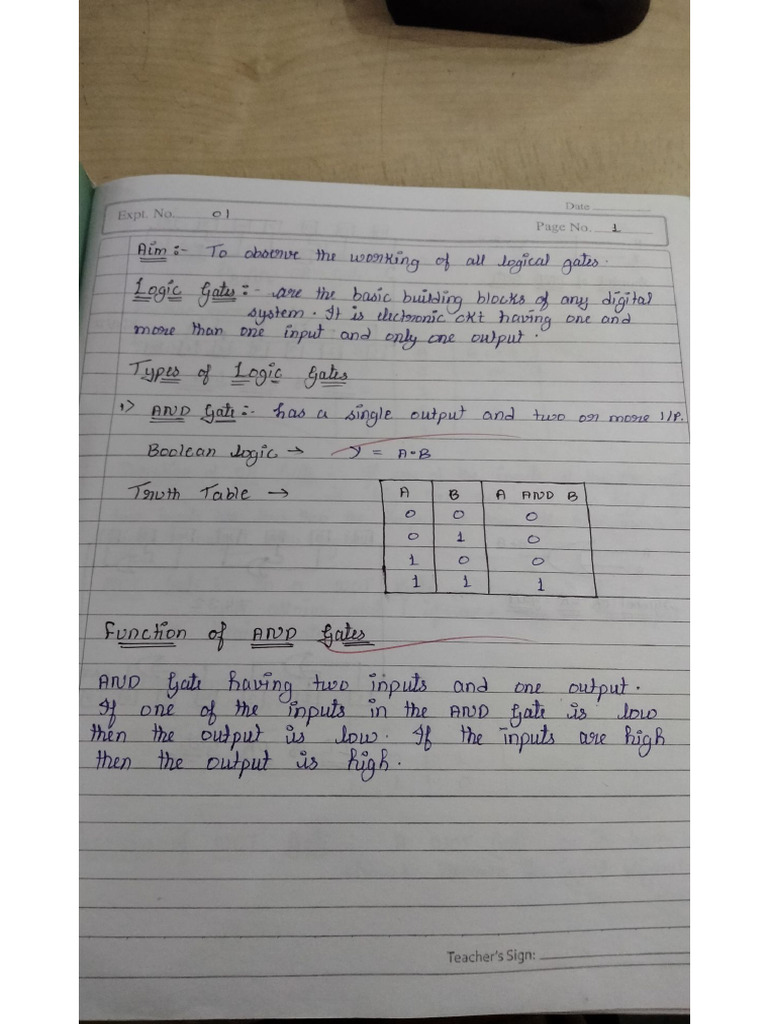 Date
Expt. No. 01
Page No. 1
Aim :- To observe the working of all logical gates.
Logic Gates :- are the basic building blocks of any digital
system. It is electronic ckt having one and
more than one input and only one output.
Types of Logic Gates
1) AND Gate :- has a single output and two or more I/P.
Boolean Logic → Y = A·B
Truth Table →
A B A AND B
0 0 0
0 1 0
1 0 0
1 1 1
Function of AND Gates
AND Gate having two inputs and one output.
If one of the inputs in the AND Gate is low
then the output is low. If the inputs are high
then the output is high.
Teacher's Sign: